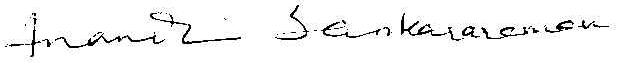 Anandi Sankararaman